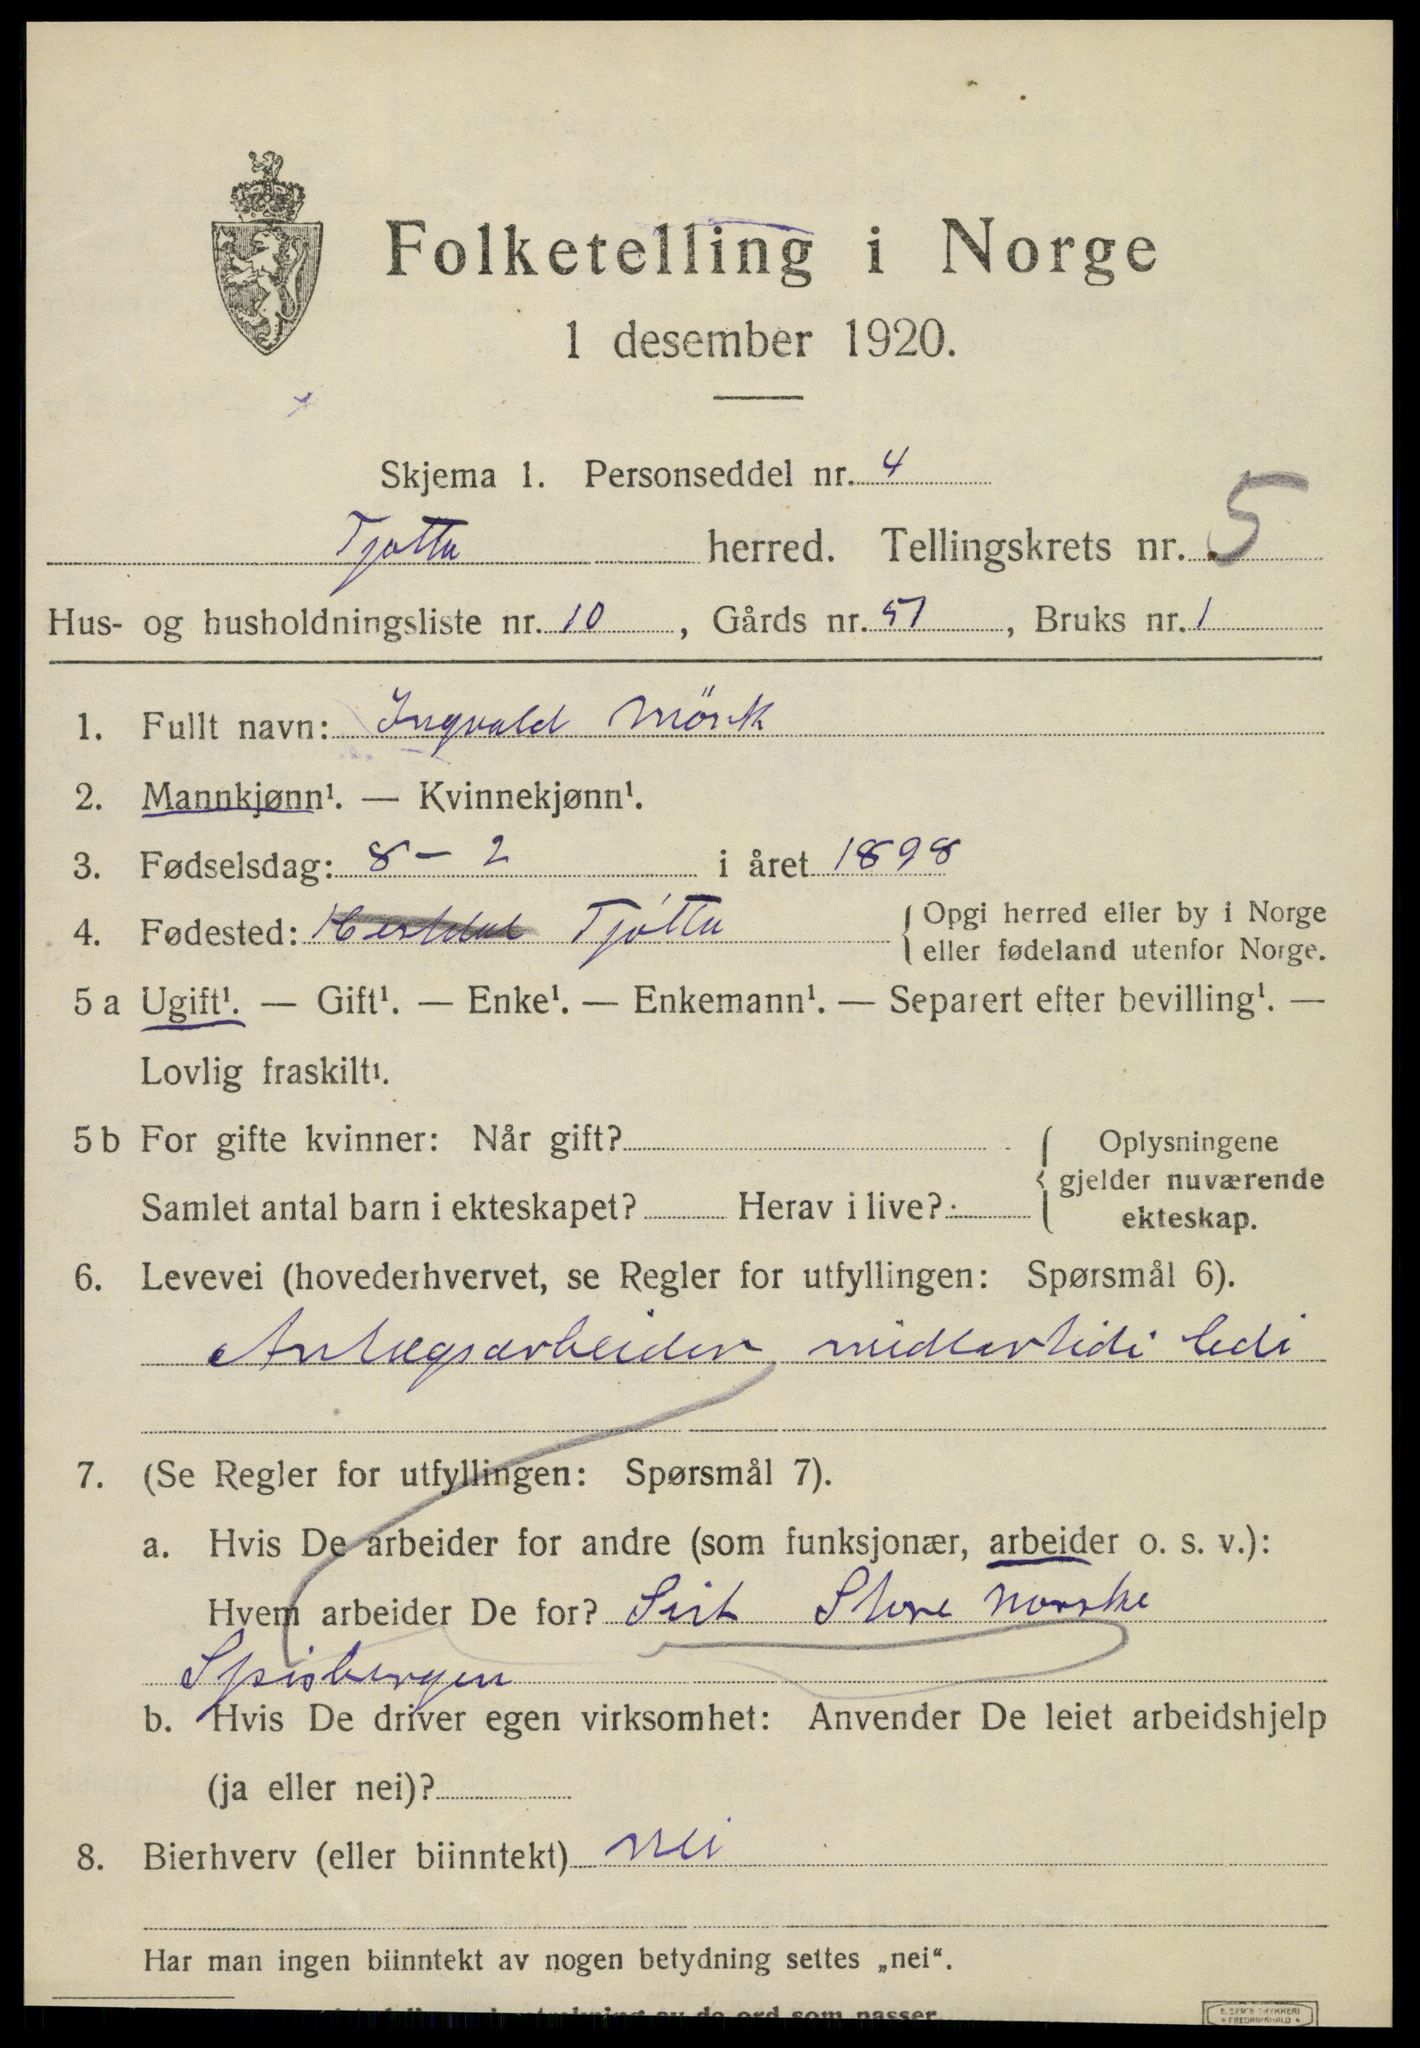 Folketelling i Norge
1 desember 1920.
Skjema 1. Personseddel nr. 4
Tjøtta herred. Tellingskrets nr. 5
Hus- og husholdningsliste nr. 10, Gårds nr. 51, Bruks nr. 1
1. Fullt navn: Ingvald Mörk
2. Mannkjønn¹. — Kvinnekjønn¹.
3. Fødselsdag: 8 - 2 i året 1898
4. Fødested: Tjótta { Opgi herred eller by i Norge
eller fødeland utenfor Norge.
5 a Ugift¹. — Gift¹. — Enke¹. — Enkemann¹. — Separert efter bevilling¹. —
Lovlig fraskilt¹.
5 b For gifte kvinner: Når gift? { Oplysningene
gjelder nuværende
Samlet antal barn i ekteskapet? Herav i live? ekteskap.
6. Levevei (hovederhvervet, se Regler for utfyllingen: Spørsmål 6).
Anlægsarbeider midlertidi ledi
7. (Se Regler for utfyllingen: Spørsmål 7).
a. Hvis De arbeider for andre (som funksjonær, arbeider o. s. v.):
Hvem arbeider De for? Sist Store norske
Spisbergen
b. Hvis De driver egen virksomhet: Anvender De leiet arbeidshjelp
(ja eller nei)?
8. Bierhverv (eller biinntekt) nei
Har man ingen biinntekt av nogen betydning settes „nei“.
av de ord som passer.